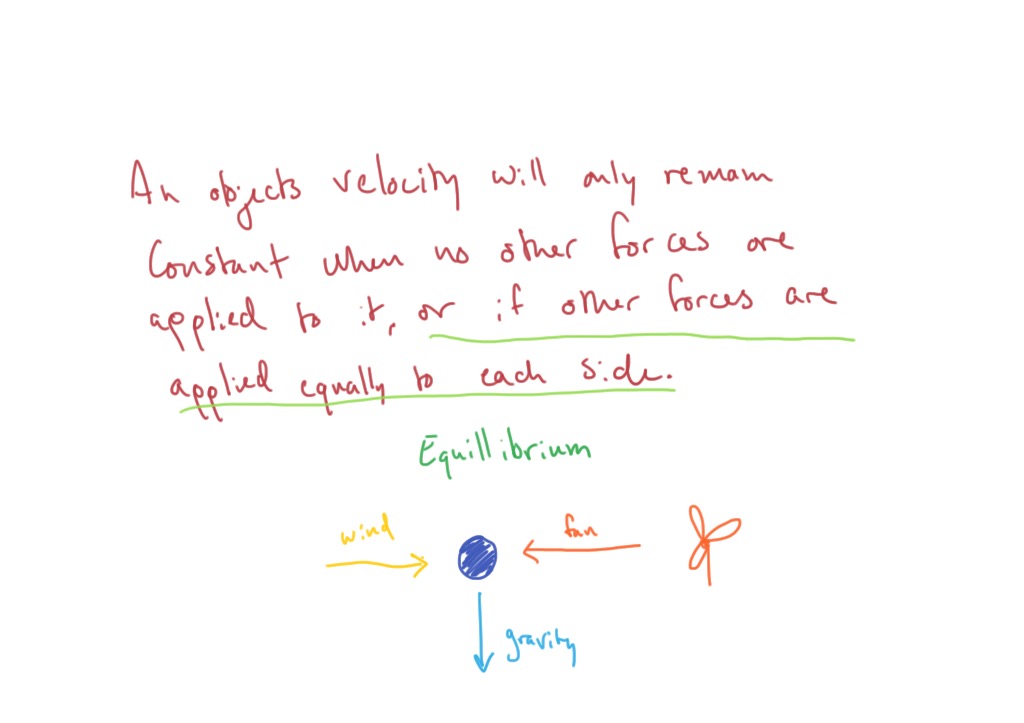 An objects velocity will only remain
Constant when no other forces are
applied to it, or if other forces are
applied equally to each side.
Equillibrium
wind
fan
gravity